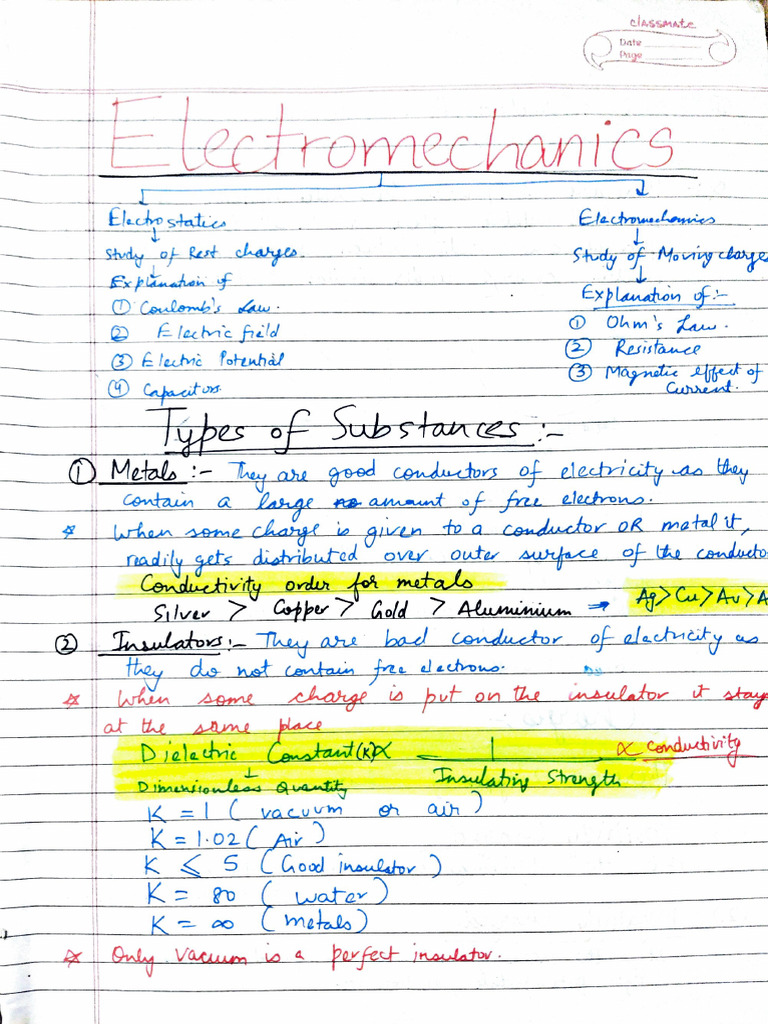 classmate
Date
Page
Electromechanics
Electrostatics
Study of Rest charges.
Explanation of
① Coulomb's Law.
② Electric field
③ Electric Potential
④ Capacitors.
Electromechanics
Study of Moving charges
Explanation of :-
① Ohm's Law.
② Resistance
③ Magnetic effect of
Current.
Types of Substances :-
① Metals :- They are good conductors of electricity as they
contain a large amount of free electrons.
* When some charge is given to a conductor OR metal it,
readily gets distributed over outer surface of the conducto
Conductivity order for metals
Silver > Copper > Gold > Aluminium → Ag > Cu > Au > A
② Insulators :- They are bad conductor of electricity as
they do not contain free electrons.
* When some charge is put on the insulator it stays
at the same place
Dielectric Constant (K) ∝ 1 / Insulating Strength ∝ conductivity
↓
Dimensionless Quantity
K = 1 ( vacuum or air )
K = 1.02 ( Air )
K ≤ 5 ( Good insulator )
K = 80 ( water )
K = ∞ ( metals )
* Only vacuum is a perfect insulator.